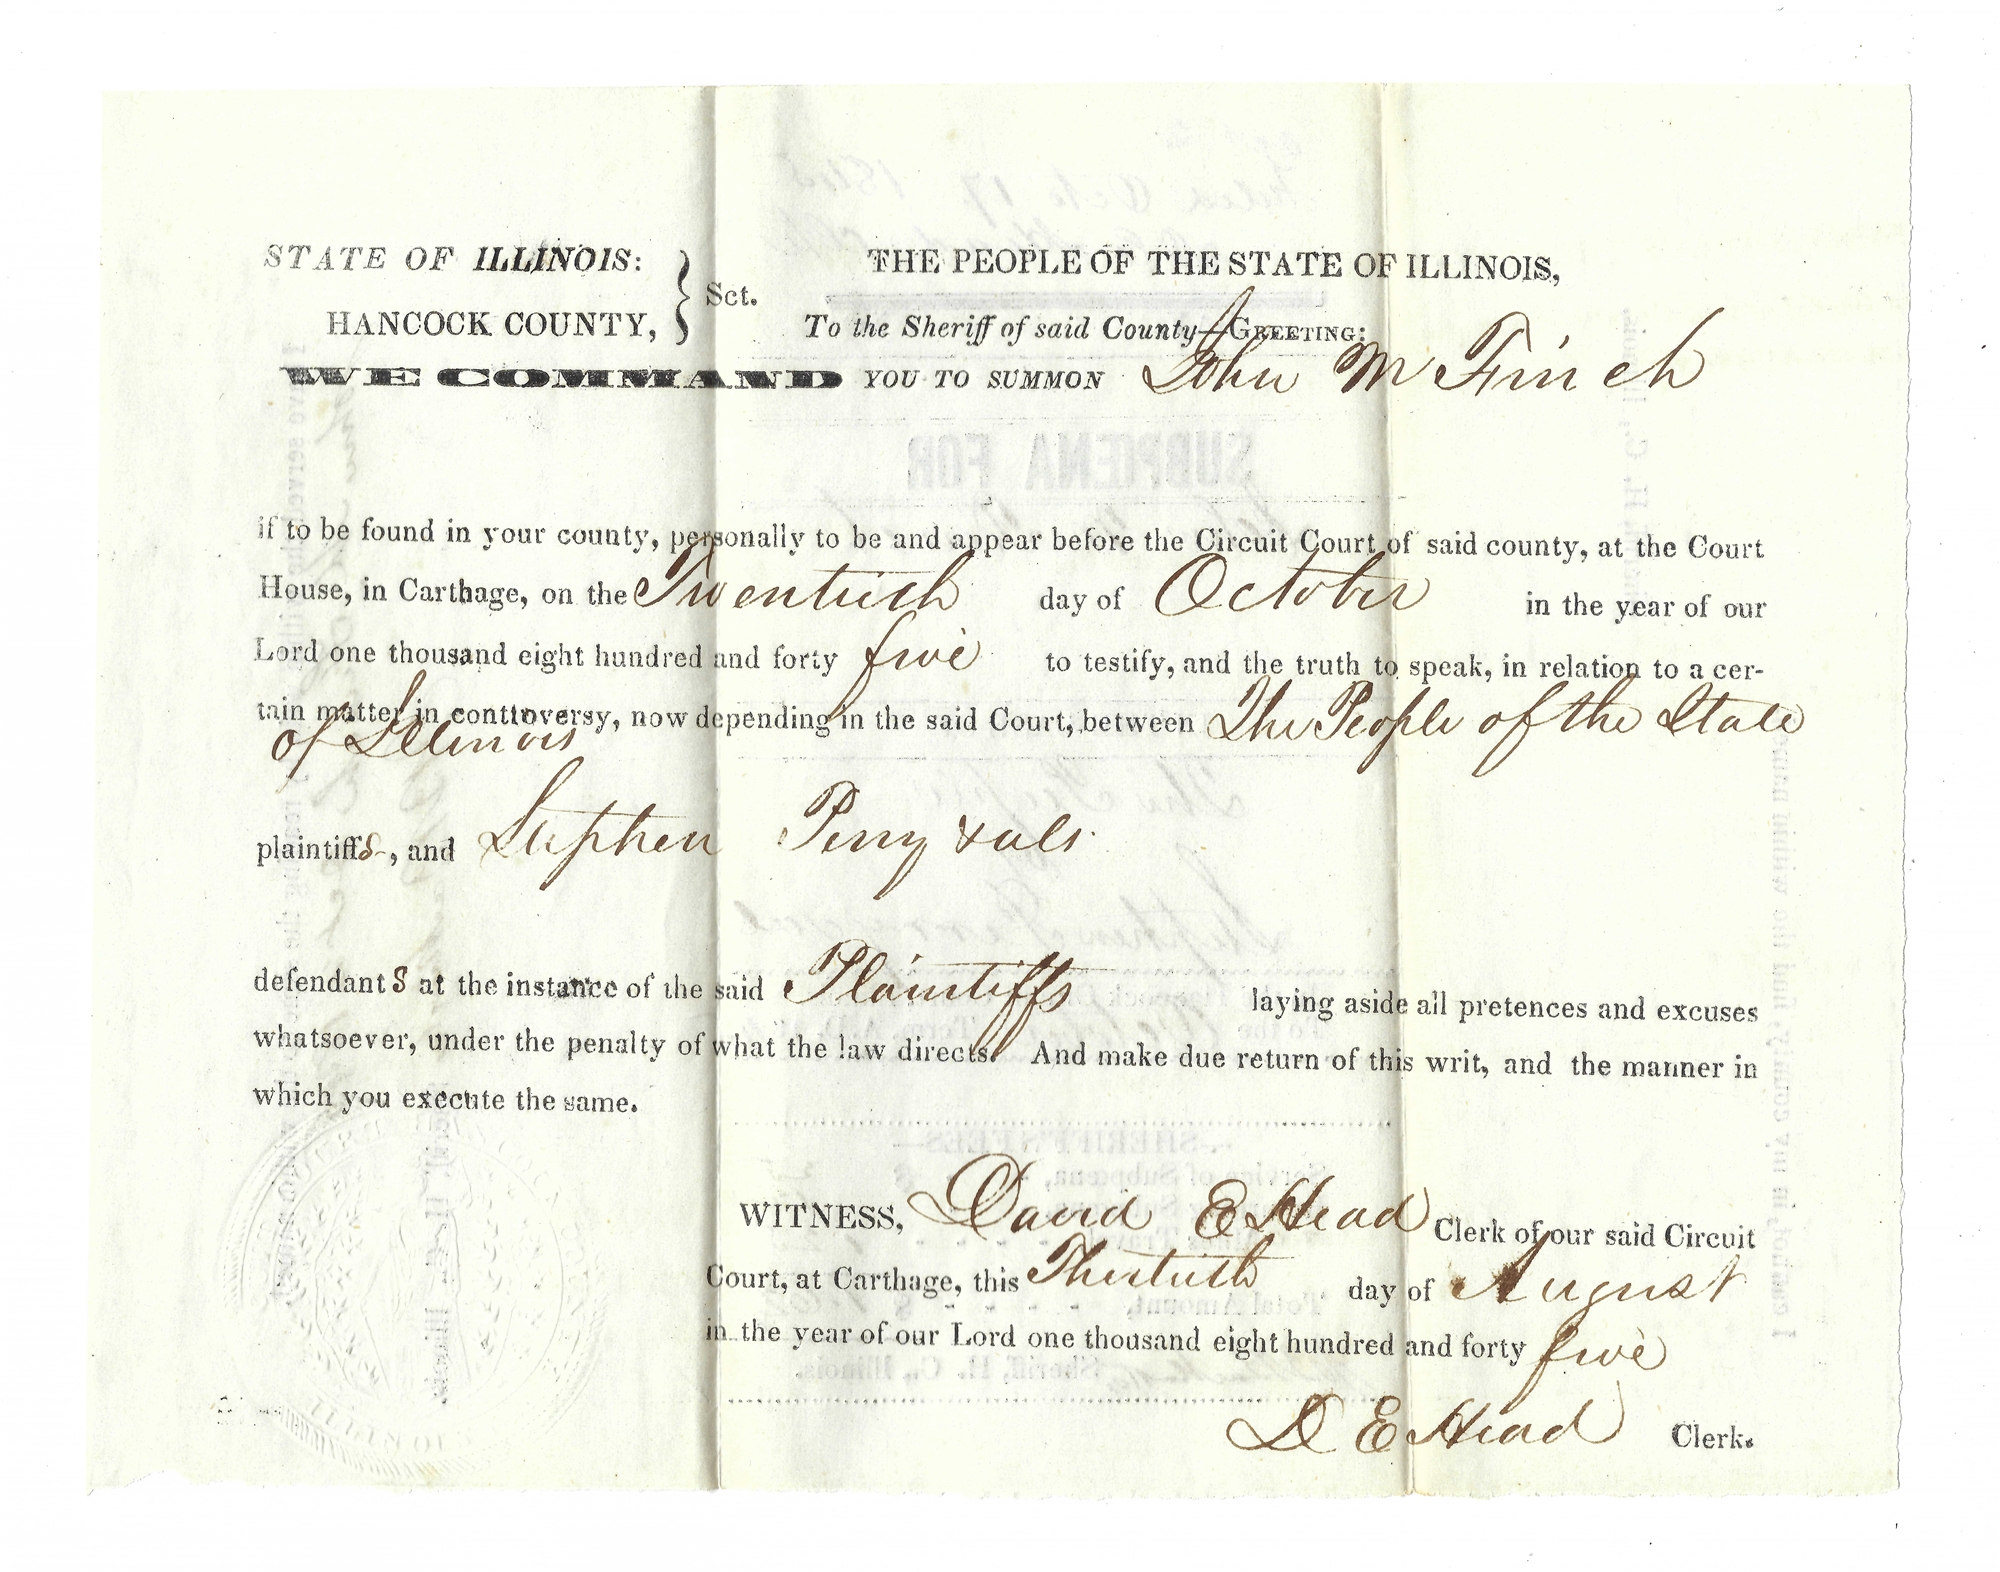 STATE OF ILLINOIS:
HANCOCK COUNTY, } Sct.
THE PEOPLE OF THE STATE OF ILLINOIS,
To the Sheriff of said County—GREETING:
WE COMMAND YOU TO SUMMON John M Finch
SUBPŒNA FOR
if to be found in your county, personally to be and appear before the Circuit Court of said county, at the Court
House, in Carthage, on the Twentieth day of October in the year of our
Lord one thousand eight hundred and forty five to testify, and the truth to speak, in relation to a cer-
tain matter in controversy, now depending in the said Court, between The People of the State
of Illinois
plaintiffs, and Stephen Perry & als
defendants at the instance of the said Plaintiffs laying aside all pretences and excuses
whatsoever, under the penalty of what the law directs. And make due return of this writ, and the manner in
which you execute the same.
WITNESS, David E Head Clerk of our said Circuit
Court, at Carthage, this Thirtieth day of August
in the year of our Lord one thousand eight hundred and forty five
D E Head Clerk.